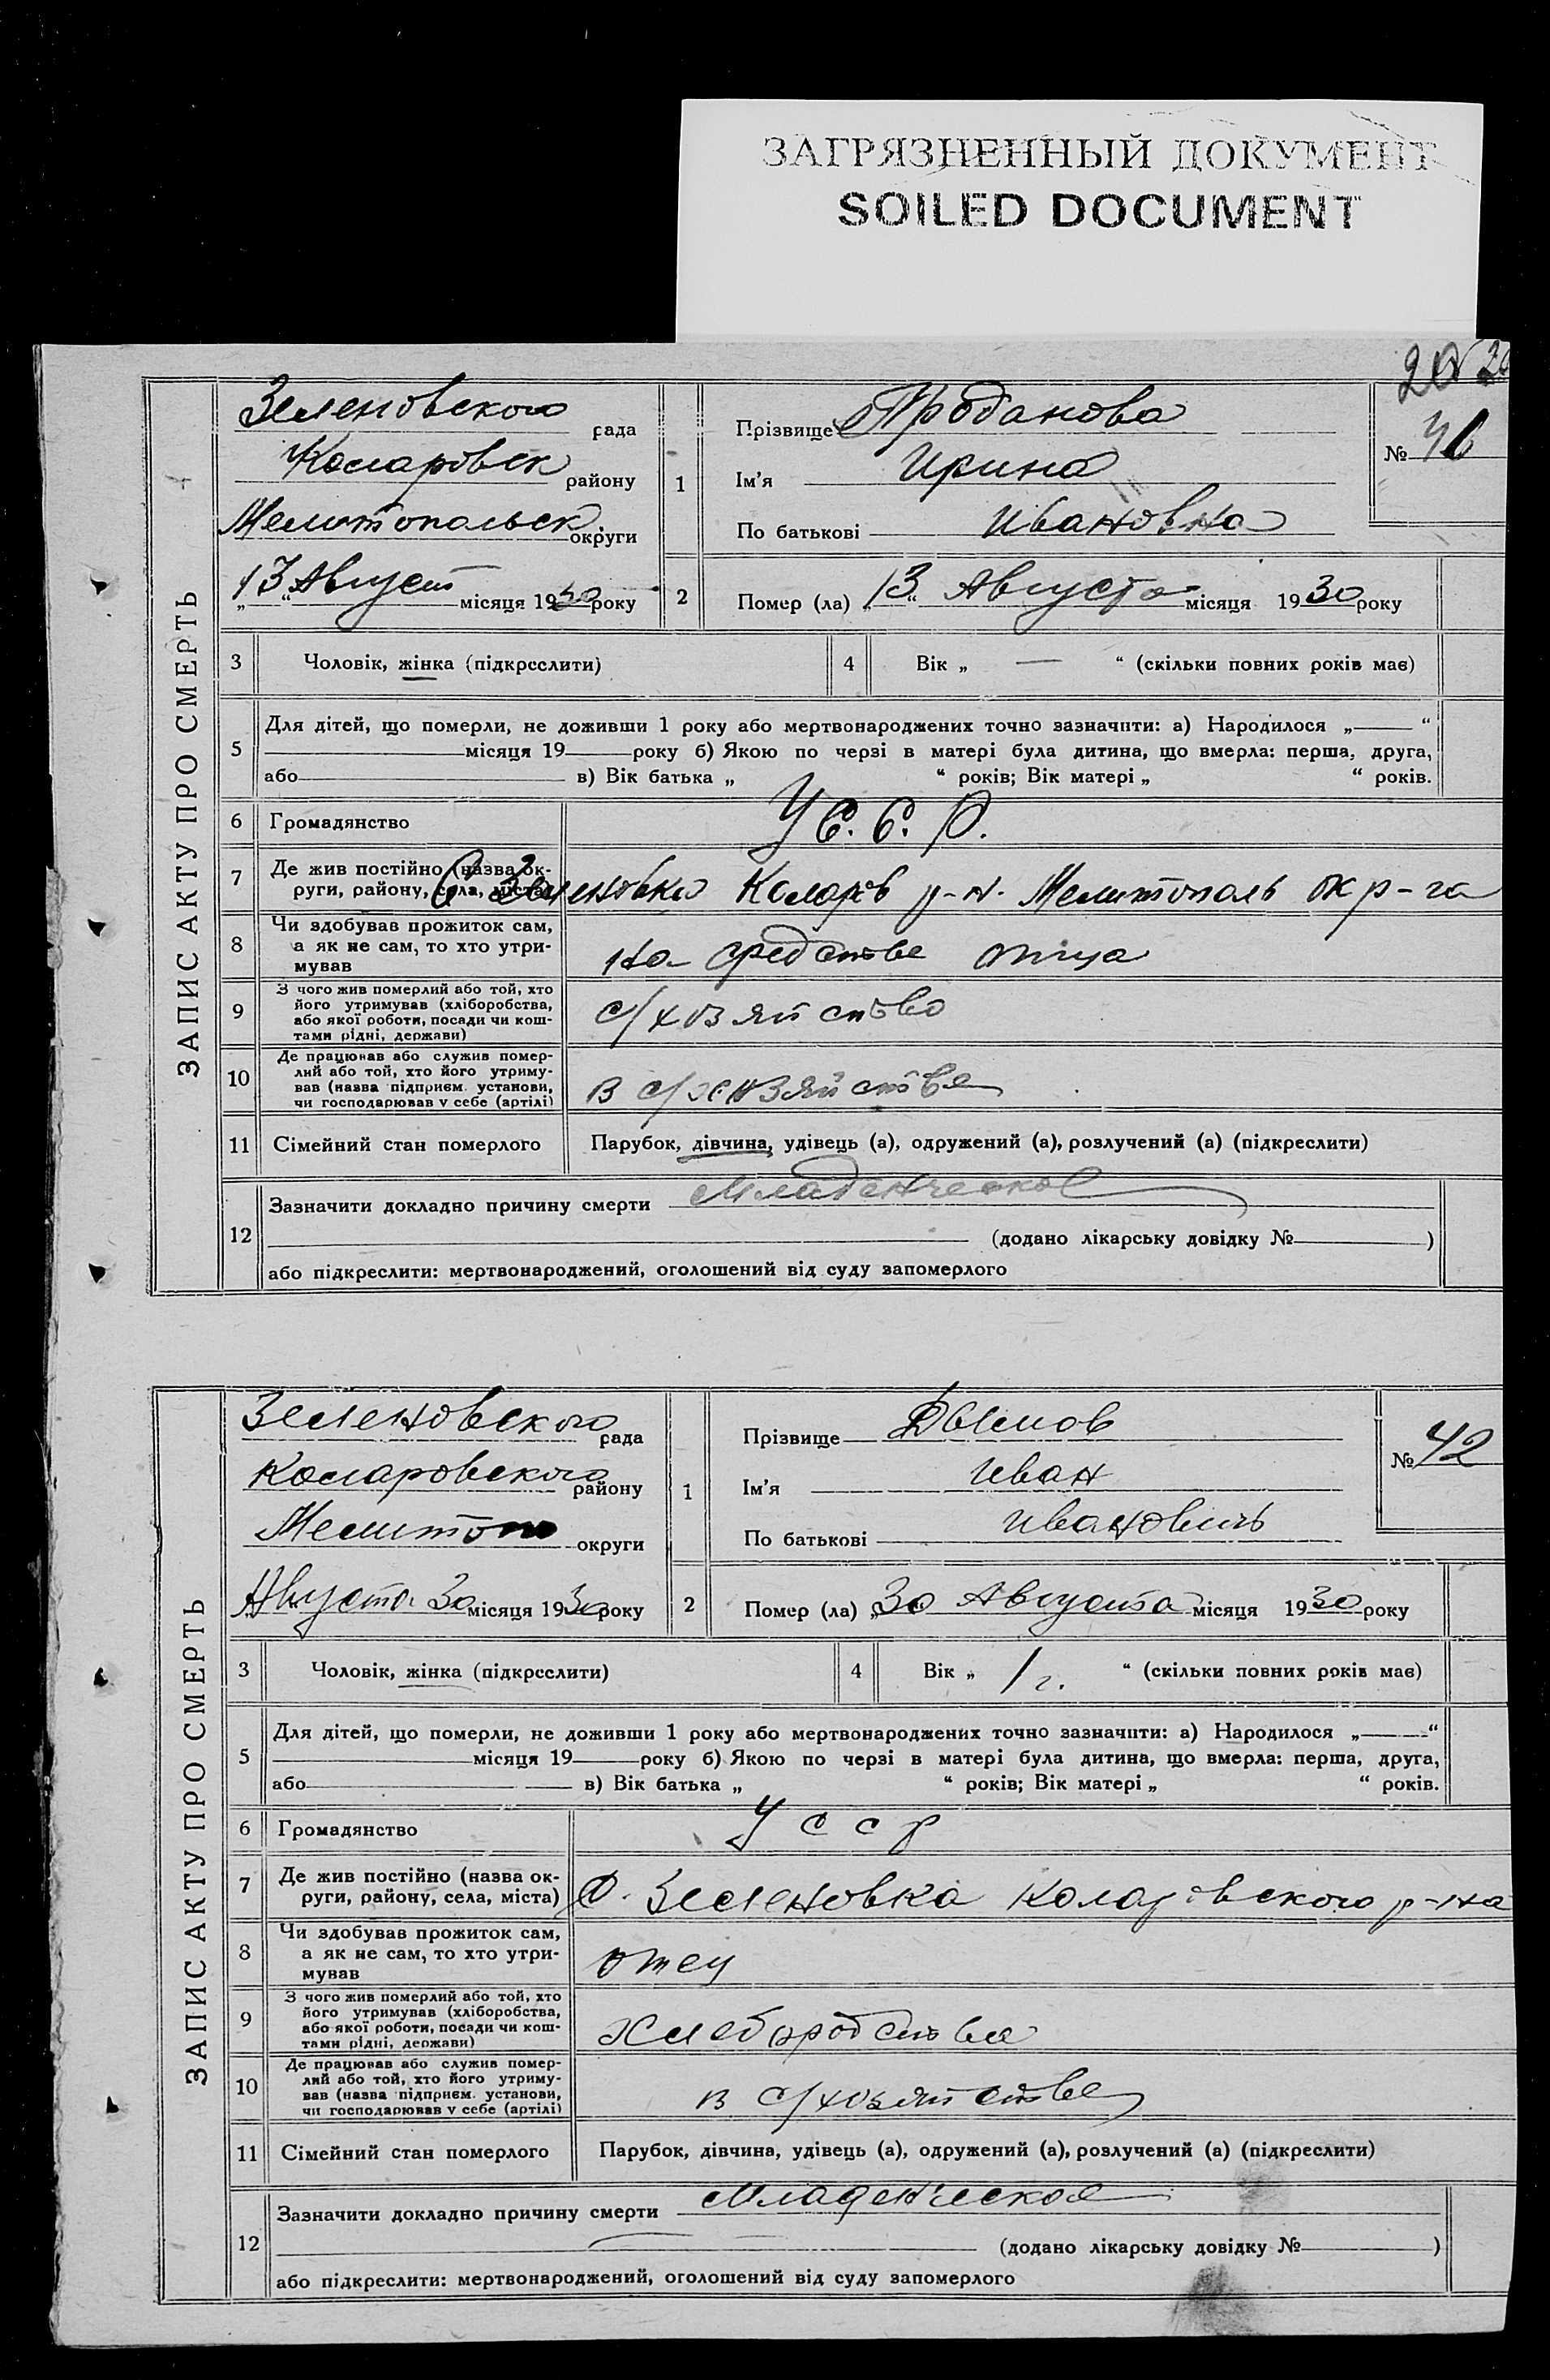 ЗАГРЯЗНЕННЫЙ ДОКУМЕНТ
SOILED DOCUMENT
20
ЗАПИС АКТУ ПРО СМЕРТЬ
Зеленовского рада
Коларовск району
Мелитопольск. округи
„13“ Август місяця 1930 року
1
Прізвище Проданова
Ім'я Ирина
По батькові Ивановна
№ 41
2
Помер (ла) „13“ Августа місяця 1930 року
3 Чоловік, жінка (підкреслити)
4 Вік „ — “ (скільки повних років має)
5
Для дітей, що померли, не доживши 1 року або мертвонароджених точно зазначити: а) Народилося „ “
місяця 19 року б) Якою по черзі в матері була дитина, що вмерла: перша, друга,
або в) Вік батька „ “ років; Вік матері „ “ років.
6 Громадянство У С. С. Р.
7 Де жив постійно (назва ок-
руги, району, села, міста) С Зеленовка Колоров р-н. Мелитополь окр-га
8 Чи здобував прожиток сам,
а як не сам, то хто утри-
мував
на средстве отца
9 З чого жив померлий або той, хто
його утримував (хліборобства,
або якої роботи, посади чи кош-
тами рідні, держави)
с/хозяйство
10 Де працював або служив помер-
лий або той, хто його утриму-
вав (назва підприєм. установи,
чи господарював у себе (артілі)
в с/хозяйстве
11 Сімейний стан померлого Парубок, дівчина, удівець (а), одружений (а), розлучений (а) (підкреслити)
12
Зазначити докладно причину смерти Младенческое
(додано лікарську довідку № )
або підкреслити: мертвонароджений, оголошений від суду запомерлого
ЗАПИС АКТУ ПРО СМЕРТЬ
Зеленовского рада
Коларовского району
Мелитоп округи
Августа 30 місяця 1930 року
1
Прізвище Дымов
Ім'я Иван
По батькові Иванович
№ 42
2
Помер (ла) „30 Августа місяця 1930 року
3 Чоловік, жінка (підкреслити)
4 Вік „ 1 г. “ (скільки повних років має)
5
Для дітей, що померли, не доживши 1 року або мертвонароджених точно зазначити: а) Народилося „ “
місяця 19 року б) Якою по черзі в матері була дитина, що вмерла: перша, друга,
або в) Вік батька „ “ років; Вік матері „ “ років.
6 Громадянство У С С Р
7 Де жив постійно (назва ок-
руги, району, села, міста) С. Зеленовка Коларовского р-на
8 Чи здобував прожиток сам,
а як не сам, то хто утри-
мував
отец
9 З чого жив померлий або той, хто
його утримував (хліборобства,
або якої роботи, посади чи кош-
тами рідні, держави)
Хлебородства
10 Де працював або служив помер-
лий або той, хто його утриму-
вав (назва підприєм. установи,
чи господарював у себе (артілі)
в с/хозяйстве
11 Сімейний стан померлого Парубок, дівчина, удівець (а), одружений (а), розлучений (а) (підкреслити)
12
Зазначити докладно причину смерти Младенческое
(додано лікарську довідку № )
або підкреслити: мертвонароджений, оголошений від суду запомерлого